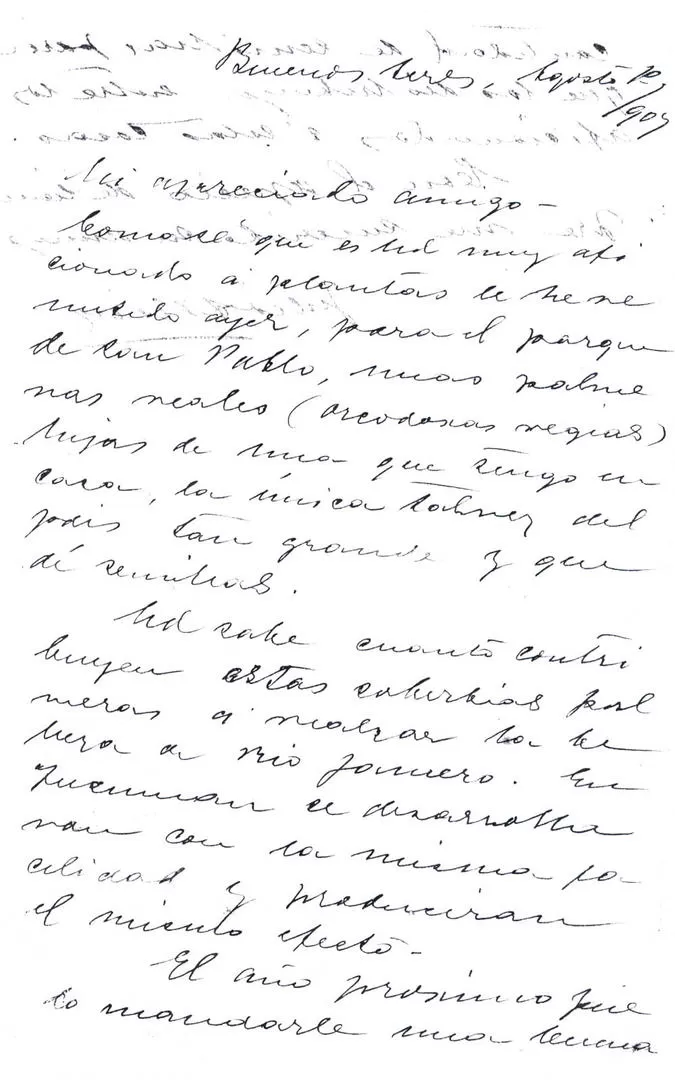 Buenos Aires, Agosto
1907
Mi apreciado amigo -
Como sé que es Ud muy afi
cionado a plantas le he re
mitido ayer, para el parque
de San Pablo, unas palme
ras reales (oreodoxas regias)
hijas de una que tengo en
casa, la única talvez del
pais tan grande y que
dé semillas.
Ud sabe cuanto contri
buyen estas soberbias pal
meras a realzar la be
lleza de Rio Janeiro. En
Tucuman se desarrolla
ran con la misma fa-
cilidad y produciran
el mismo efecto -
El año proximo pue
do mandarle una buena